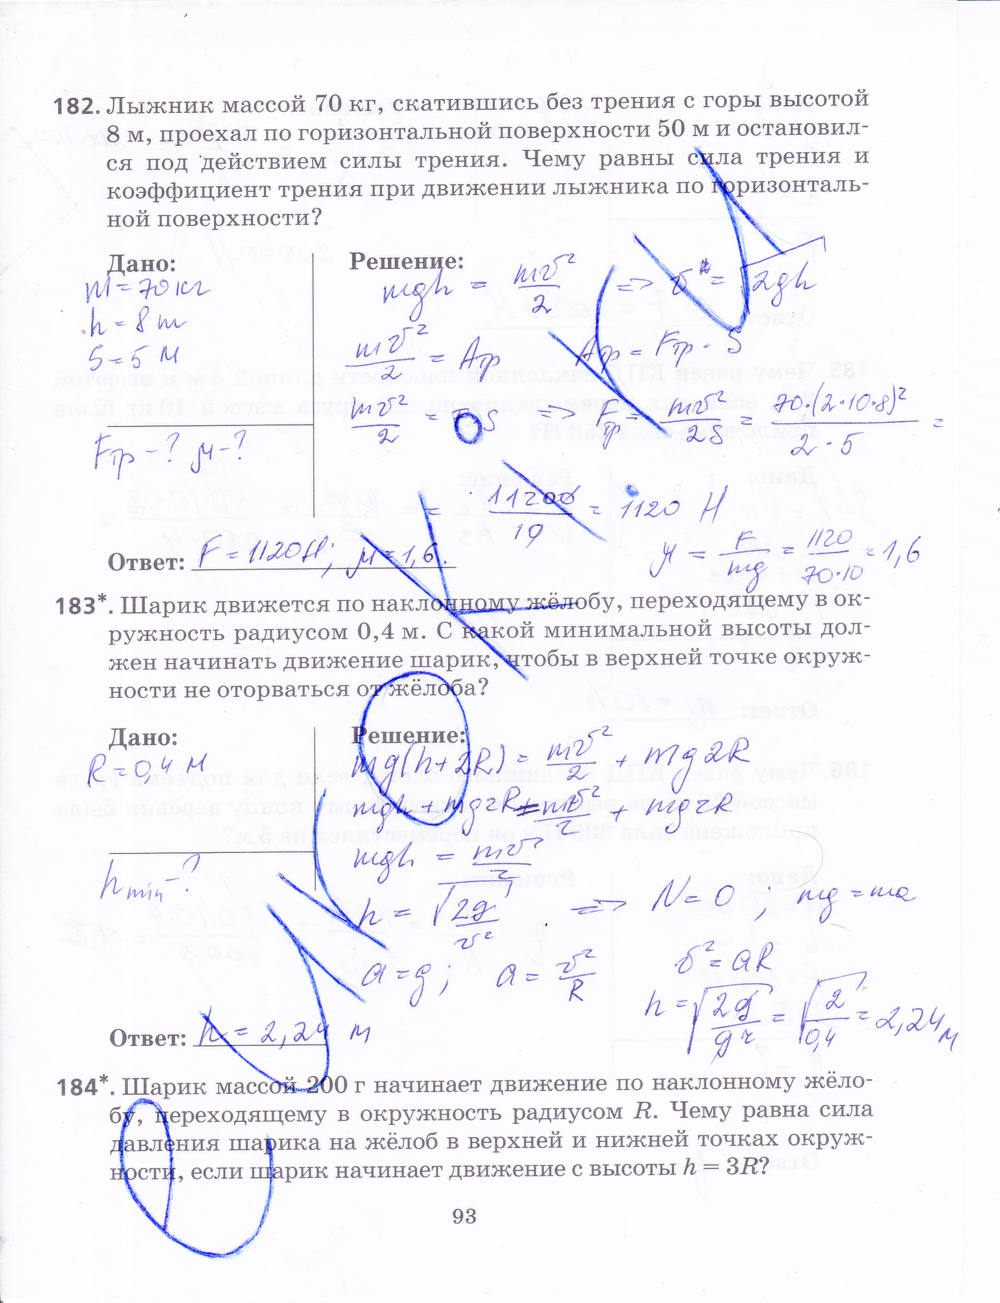 182. Лыжник массой 70 кг, скатившись без трения с горы высотой
8 м, проехал по горизонтальной поверхности 50 м и остановил-
ся под действием силы трения. Чему равны сила трения и
коэффициент трения при движении лыжника по горизонталь-
ной поверхности?
Дано:
m = 70 кг
h = 8 m
S = 5 м
Fтр - ? μ - ?
Решение:
mgh = mv²/2 => v = √2gh
mv²/2 = Aтр Aтр = Fтр · S
mv²/2 = FS => Fтр = mv²/2S = 70·(2·10·8)²/2·5 =
= 11200/10 = 1120 Н
μ = F/mg = 1120/70·10 = 1,6
Ответ: F = 1120 Н; μ = 1,6.
183*. Шарик движется по наклонному жёлобу, переходящему в ок-
ружность радиусом 0,4 м. С какой минимальной высоты дол-
жен начинать движение шарик, чтобы в верхней точке окруж-
ности не оторваться от жёлоба?
Дано:
R = 0,4 м
hmin - ?
Решение:
mg(h+2R) = mv²/2 + mg2R
mgh + mg2R = mv²/2 + mg2R
mgh = mv²/2
h = √2g/v² => N = 0 ; mg = ma
a = g; a = v²/R
v² = aR
h = √2g/gr = √2/0,4 = 2,24 м
Ответ: h = 2,24 м
184*. Шарик массой 200 г начинает движение по наклонному жёло-
бу, переходящему в окружность радиусом R. Чему равна сила
давления шарика на жёлоб в верхней и нижней точках окруж-
ности, если шарик начинает движение с высоты h = 3R?
93